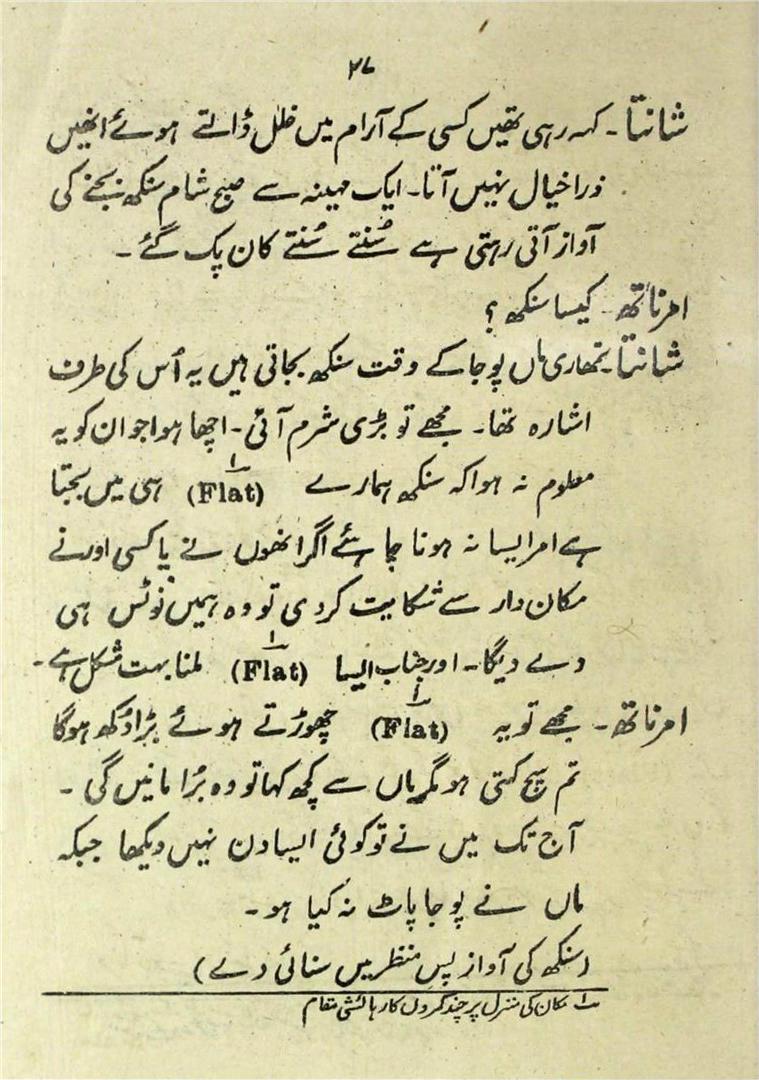 ۲۷
شانتا۔ کہہ رہی تھیں کسی کے آرام میں خلل ڈالتے ہوئے انھیں
ذرا خیال نہیں آتا۔ ایک مہینہ سے صبح شام سنکھ بجنے کی
آواز آتی رہتی ہے سُنتے سُنتے کان پک گئے۔
امرناتھ۔ کیسا سنکھ؟
شانتا۔ تمھاری ماں پوجا کے وقت سنکھ بجاتی ہیں یہ اُس کی طرف
اشارہ تھا۔ مجھے تو بڑی شرم آئی۔ اچھا ہوا جو ان کو یہ
معلوم نہ ہوا کہ سنکھ ہمارے (Flat)۱ ہی میں بجتا
ہے امر ایسا نہ ہونا چاہئے اگر انھوں نے یا کسی اور نے
مکان دار سے شکایت کر دی تو وہ ہمیں نوٹس ہی
دے دیگا۔ اور جناب ایسا (Flat)۱ ملنا بہت مشکل ہے۔
امرناتھ۔ مجھے تو یہ (Flat)۱ چھوڑتے ہوئے بڑا دُکھ ہوگا
تم سچ کہتی ہو مگر ماں سے کچھ کہا تو وہ بُرا مانیں گی۔
آج تک میں نے تو کوئی ایسا دن نہیں دیکھا جبکہ
ماں نے پوجا پاٹ نہ کیا ہو۔
(سنکھ کی آواز پس منظر میں سنائی دے)
۱ مکان کی منزل پر چند کمروں کا رہائشی مقام